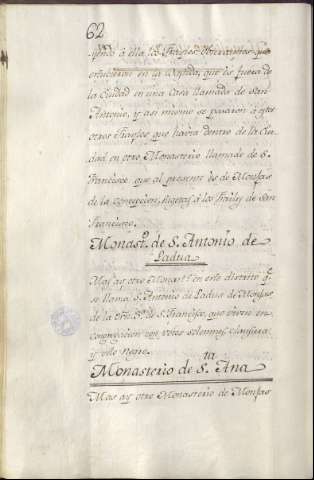 62
á ella los Frayles Observantes que
estuvieron en la que es fuera de
la Ciudad en una Casa llamada de San
Antonio, y asi mismo se pasaron á ella
otros Frayles que havia dentro de la Ciu-
dad en otro Monasterio llamado de S.
Francisco que al presente es de Monjas
de la Concepcion, sugetas á los Frailes de San
Francisco.
Monast.º de S. Antonio de
Padua
Mas ay otro Monast.º en este distrito q.e
se llama S. Antonio de Padua de Monjas
de la de S. Francisco, que viven en
congregacion con votos solemnes clausura
y velo negro.
Monasterio de S.ta Ana
Mas ay otro Monasterio de Monjas